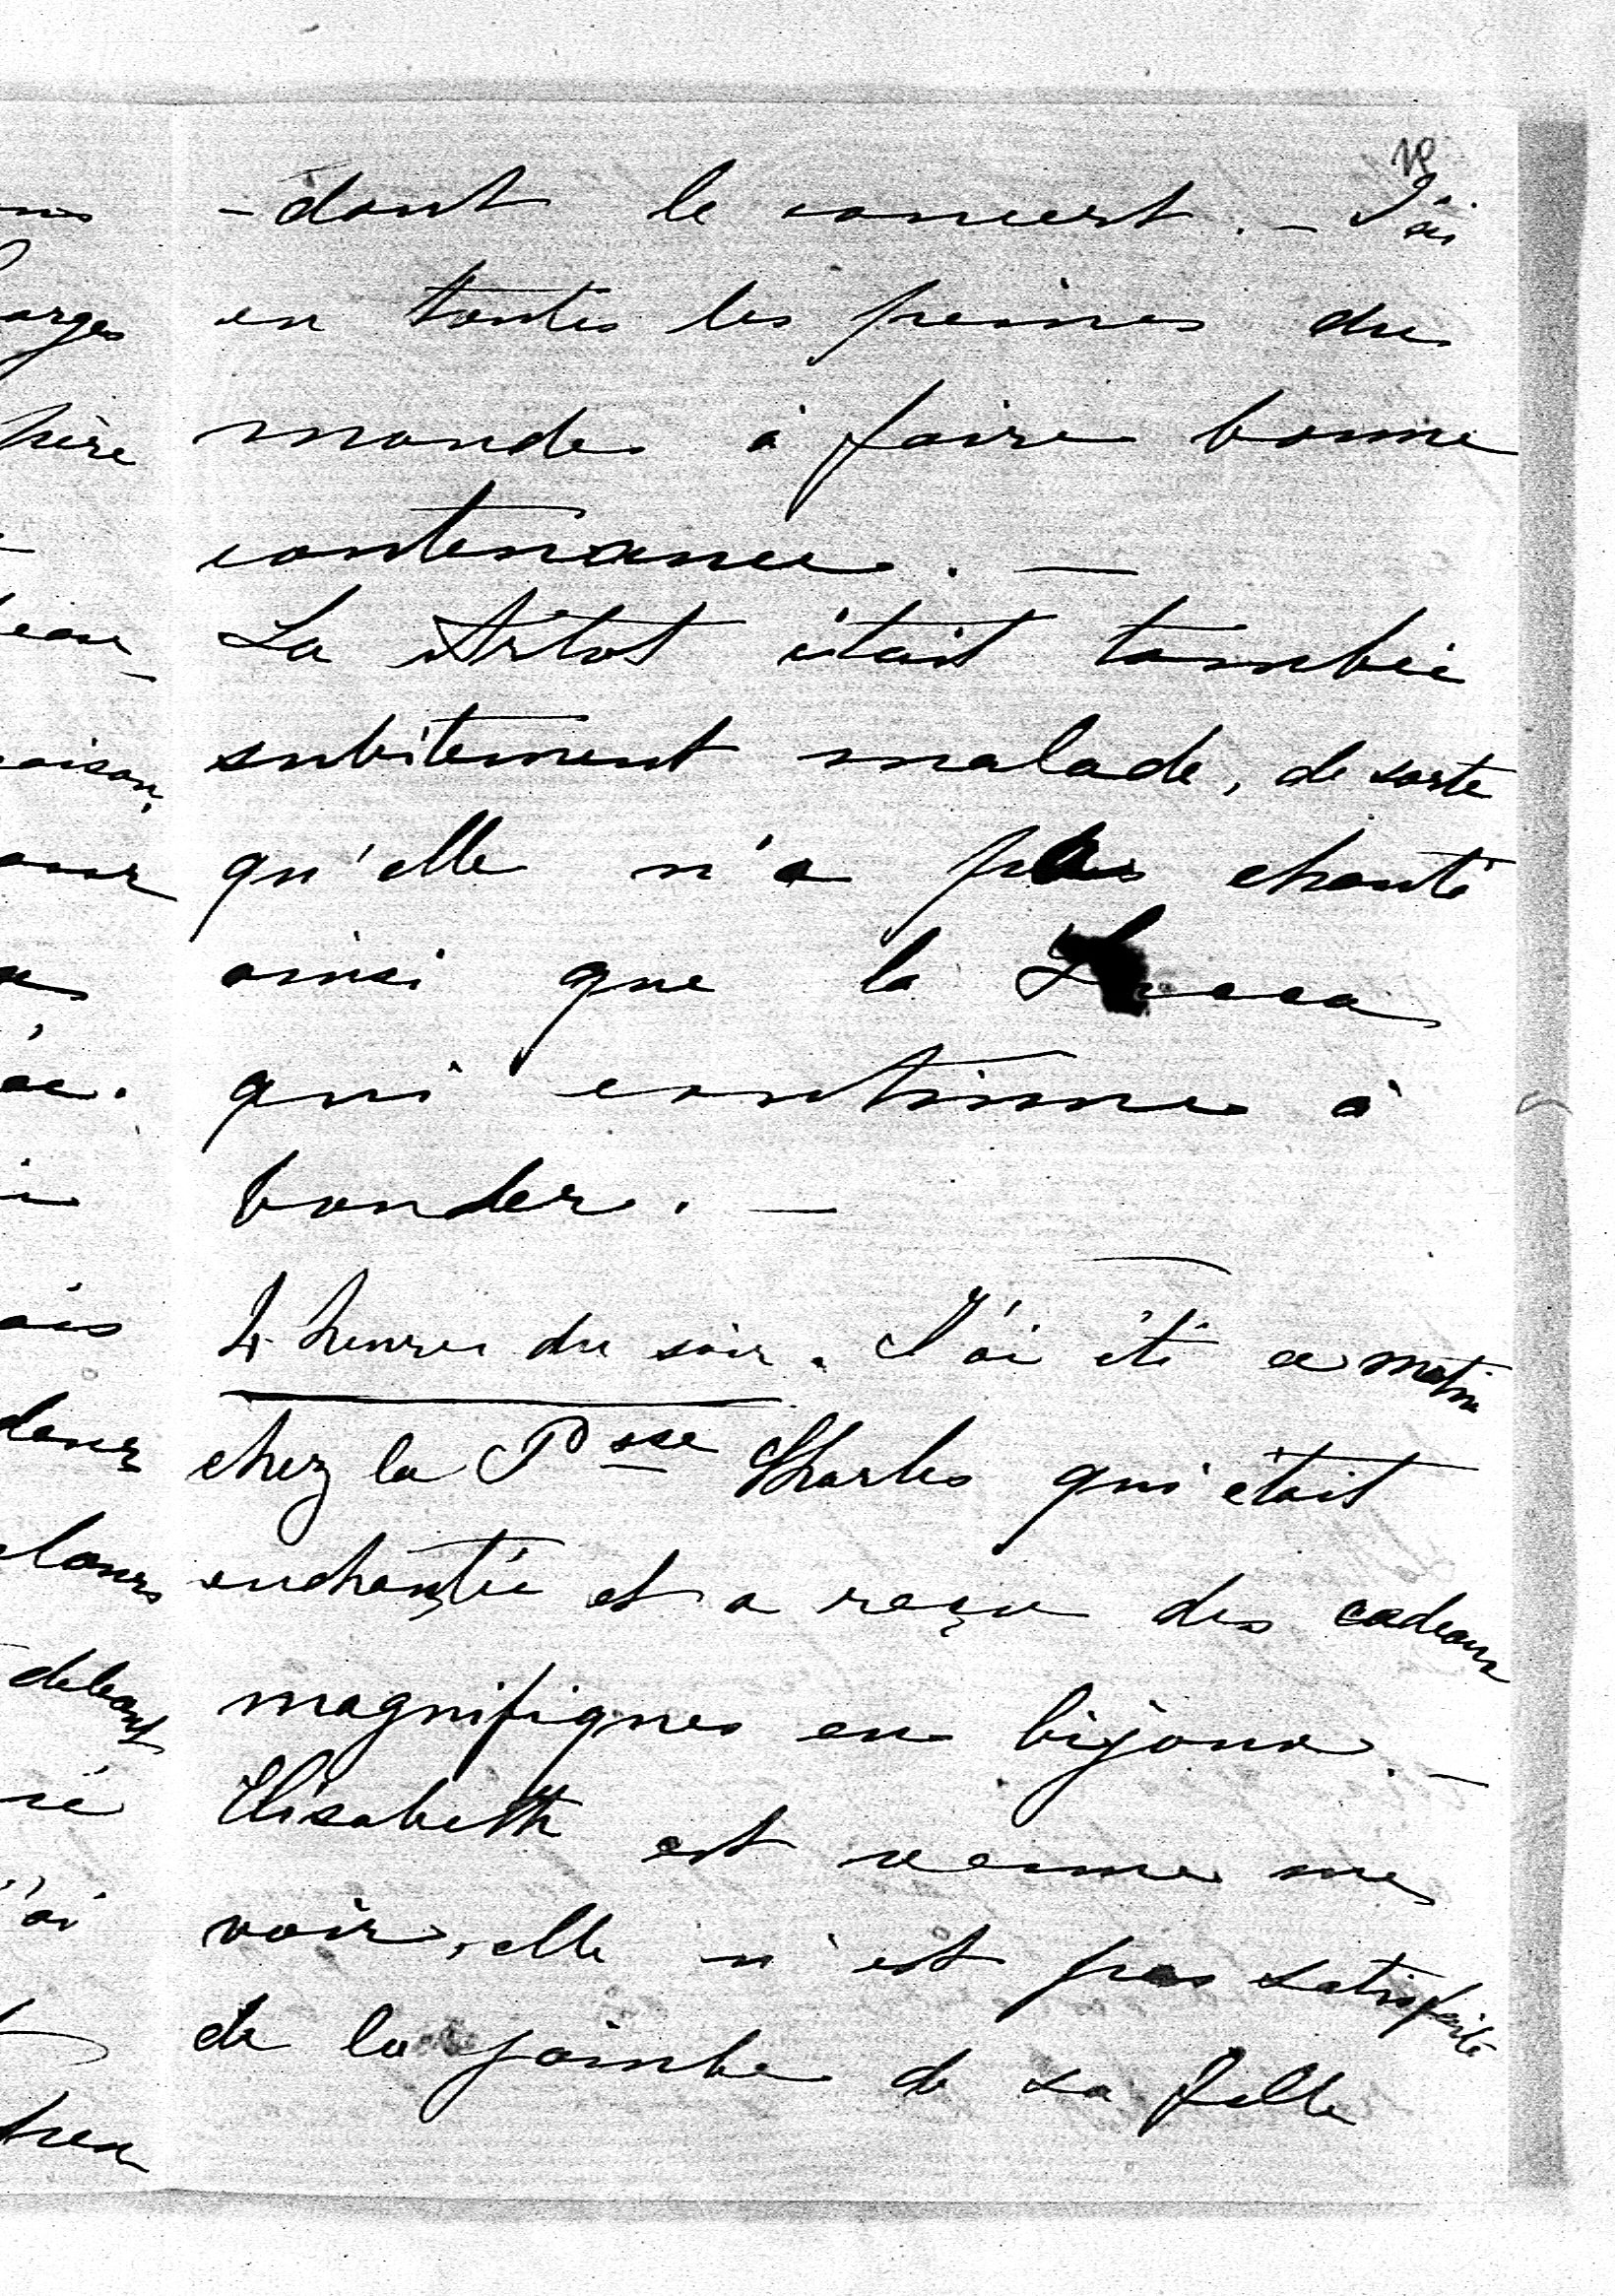 -dant le concert. — J'ai
eu toutes les peines du
monde à faire bonne
contenance. —
La Artot était tombée
subitement malade, de sorte
qu'elle n'a pas chanté
ainsi que la Lucca
qui continue à
bouder. —
4 heures du soir. J'ai été ce matin
chez la Psse Charles qui était
enchantée et a reçu des cadeaux
magnifiques en bijoux. —
Elisabeth est venue me
voir, elle n'est pas satisfaite
de la jambe de sa fille